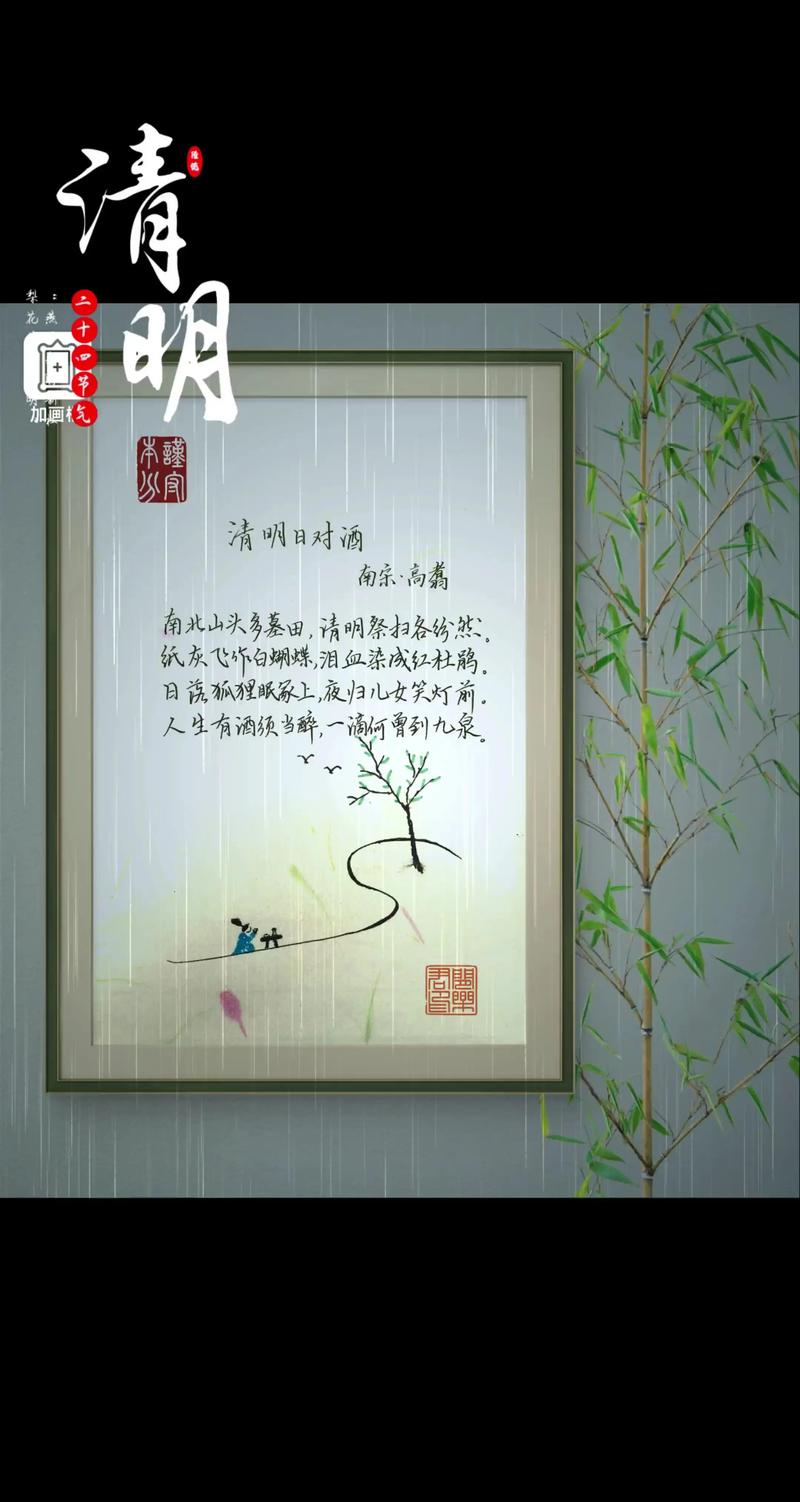 清明
二十四节气
梨花
加画
清明日对酒
南宋·高翥
南北山头多墓田，清明祭扫各纷然。
纸灰飞作白蝴蝶，泪血染成红杜鹃。
日落狐狸眠冢上，夜归儿女笑灯前。
人生有酒须当醉，一滴何曾到九泉。